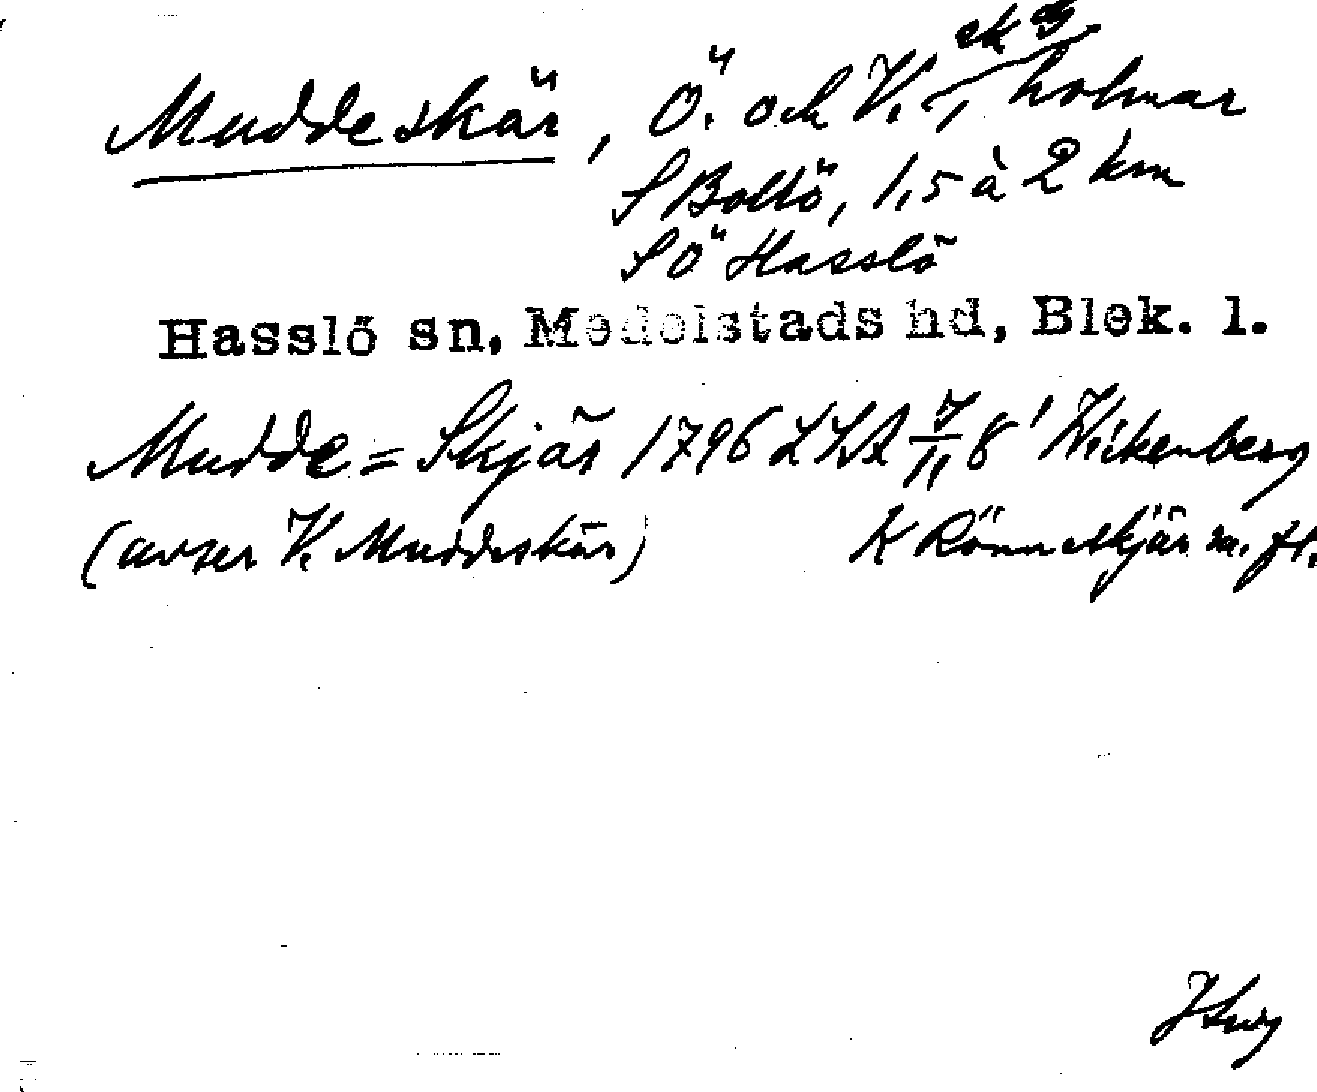 Muddeskär, Ö. och V., holmar
S Boltö, 1,5 à 2 km
SÖ Hasslö
Hasslö sn, Medelstads hd, Blek. l.
Mudde=Skjär 1796 LSA 7/11 8' Wikenberg
(avser V. Muddeskär) K Rönneskjär m. fl.